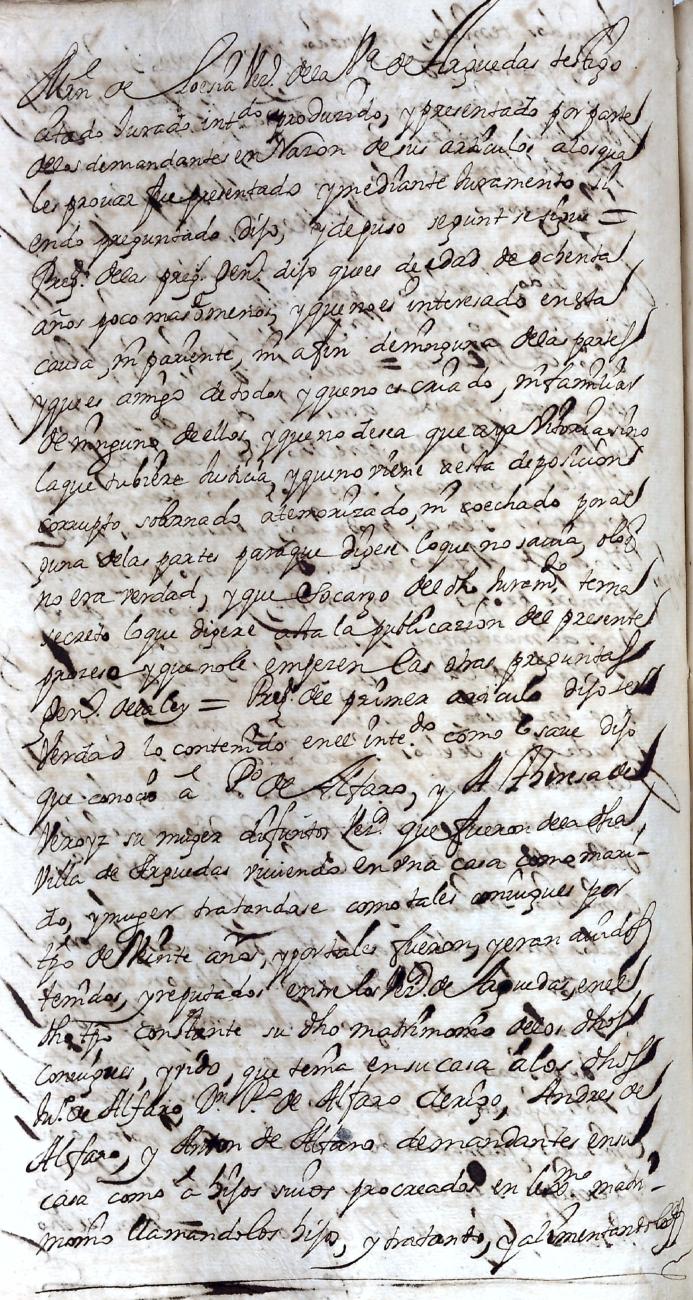 Mīn de Loesa Vez.º dela Vª de Arguedas testigo
citado Jurado int.do produzido, y presentado por parte
delos demandantes en Razon de sus articulos alos qua
les provar fue presentado y mediante Juramento si
endo preguntado dijo, y depuso segunt se sigue =
Preg.º delas preg. Gen.s dijo ques de edad de ochenta
años poco mas o menos, y que no es interesado en esta
causa, ni pariente, ni afin de ninguna delas partes
y que es amigo de todos y que no es criado, ni familiar
de ninguno de ellos, y que no desea que aya Vitoria sino
la que tubiere Justicia, y que no viene a esta deposicion
corrupto, sobornado, atemorizado, ni coechado por al
guna delas partes para que dijese lo que no savia, o lo q
no era verdad, y que so cargo del dho Juram.to terna
secreto lo que dijere asta la publicazion del presente
proceso y que no le empezen las otras preguntas
Gen.s dela ley = Preg.º del primer articulo dijo ser
Verdad lo contenido en el inte.do como lo save dijo
que conocio a P.º de Alfaro, y a Theresa de
Veroyz su muger difuntos Vez.os que fueron dela dha
Villa de Arguedas viviendo en una casa como mari-
do, y muger tratandose como tales conjuges por
tpo de Veinte años, y por tales fueron, y eran avidos
tenidos, y reputados entre los Vez.os de Arguedas, en el
dho tpo constante su dho matrimonio delos dhos
conjuges, y vido, que tenia en su casa a los dhos
Ju.º de Alfaro, Dn P.º de Alfaro Clerigo, Andres de
Alfaro, y Anton de Alfaro demandantes en su
casa como a hijos suios procreados en le.mo matri-
monio llamandolos hijos, y tratando, y alimentandolos